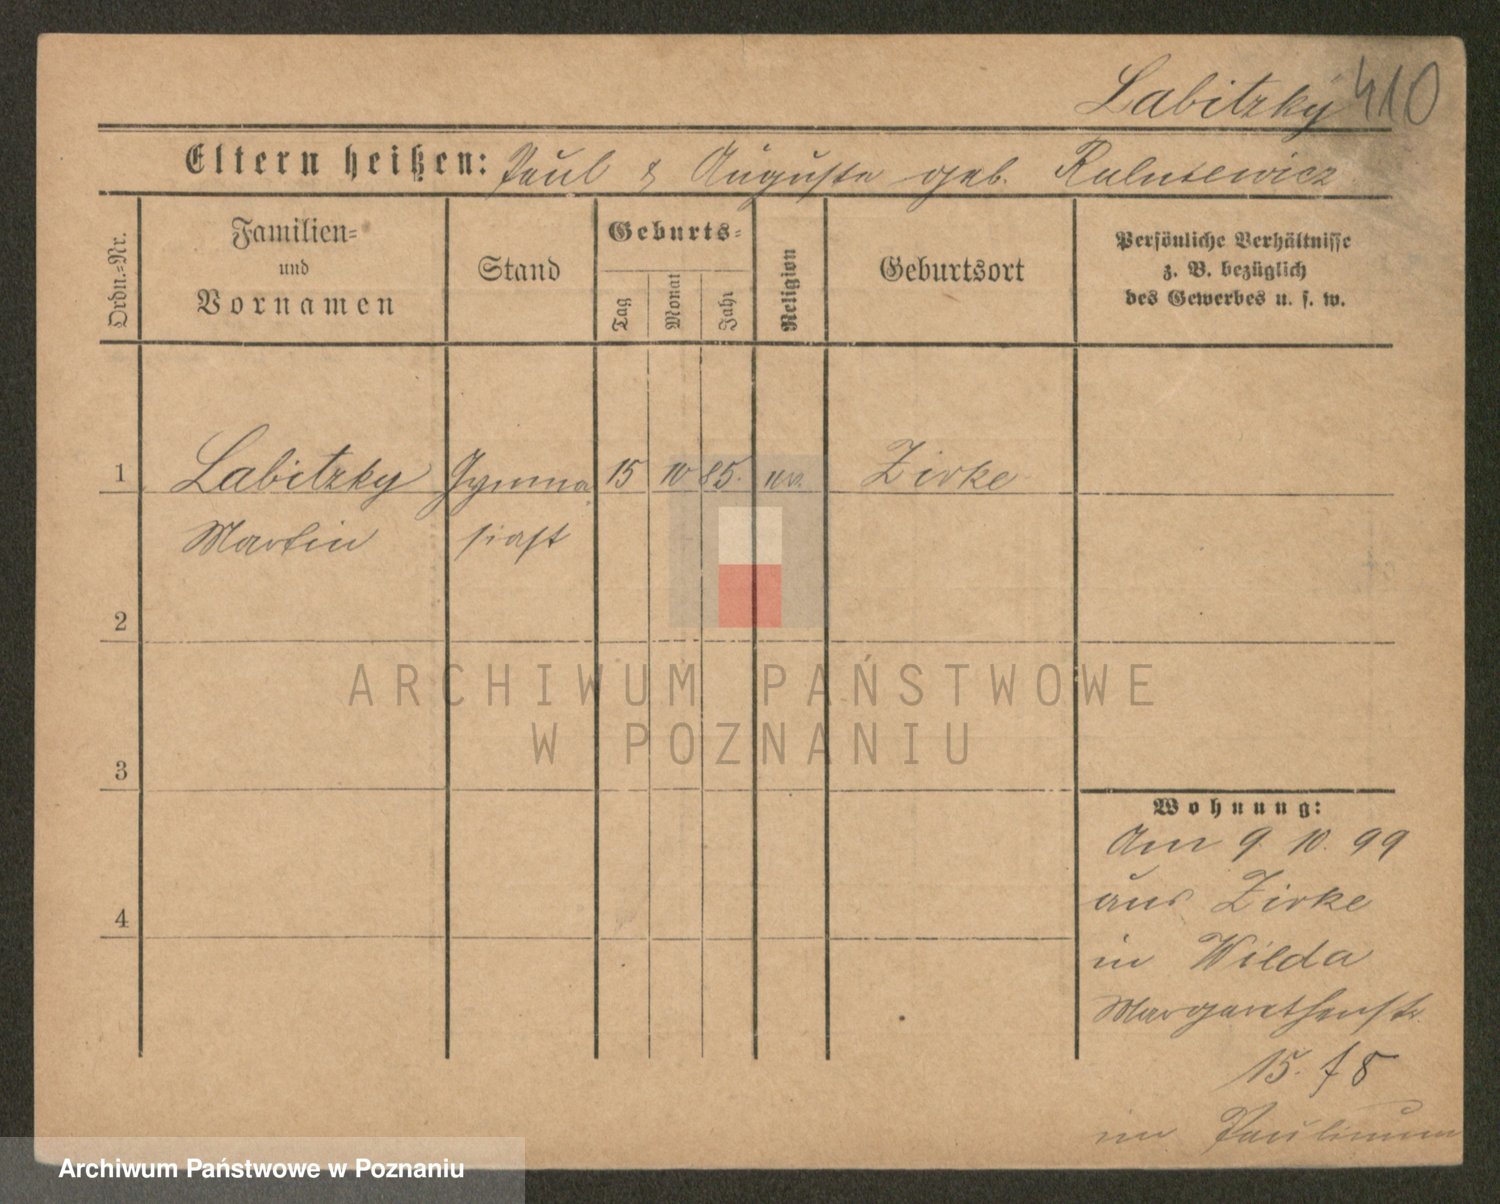 Labitzky 410
Eltern heißen: Paul & Auguste geb.
Ordn.=Nr.
Familien=
und
Vornamen
Stand
Geburts=
Tag
Monat
Jahr
Religion
Geburtsort
Persönliche Verhältnisse
z. B. bezüglich
des Gewerbes u. s. w.
1 Labitzky Gymna 15 10 85. ev. Zirke
Martin siast
2
3
4
Wohnung:
Am 9. 10. 99
aus Zirke
in Wilda
Margarethenstr.
15. f 8
im Paulinum
ARCHIWUM PAŃSTWOWE
W POZNANIU
Archiwum Państwowe w Poznaniu